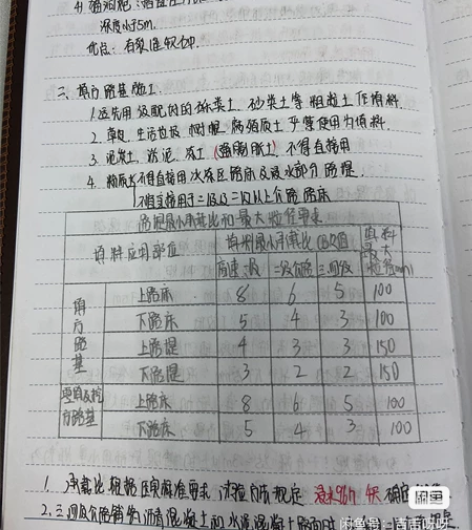 深度小于5m.
二、填方路基施工
1.宜选用级配好的砾类土、砂类土等粗粒土作填料.
2.草皮、生活垃圾、树根、腐殖质土严禁使用为填料.
3.泥炭土、淤泥、冻土、(强膨胀土) 不得直接用
4.粉质土不得直接用浸水部分路堤.
路基最小承载比和最大粒径要求
填料应用部位 填料最小承载比CBR值 填料最大粒径(mm)
高速一级 二级公路 三四级
填方路基 上路床 8 6 5 100
下路床 5 4 3 100
上路堤 4 3 3 150
下路堤 3 2 2 150
零填及挖方路基 上路床 8 6 5 100
下路床 5 4 3 100
1. 承载比根据压实标准要求 试验方法规定 浸水96h
2.三四级公路铺筑沥青混凝土和水泥混凝土路面时
闲鱼